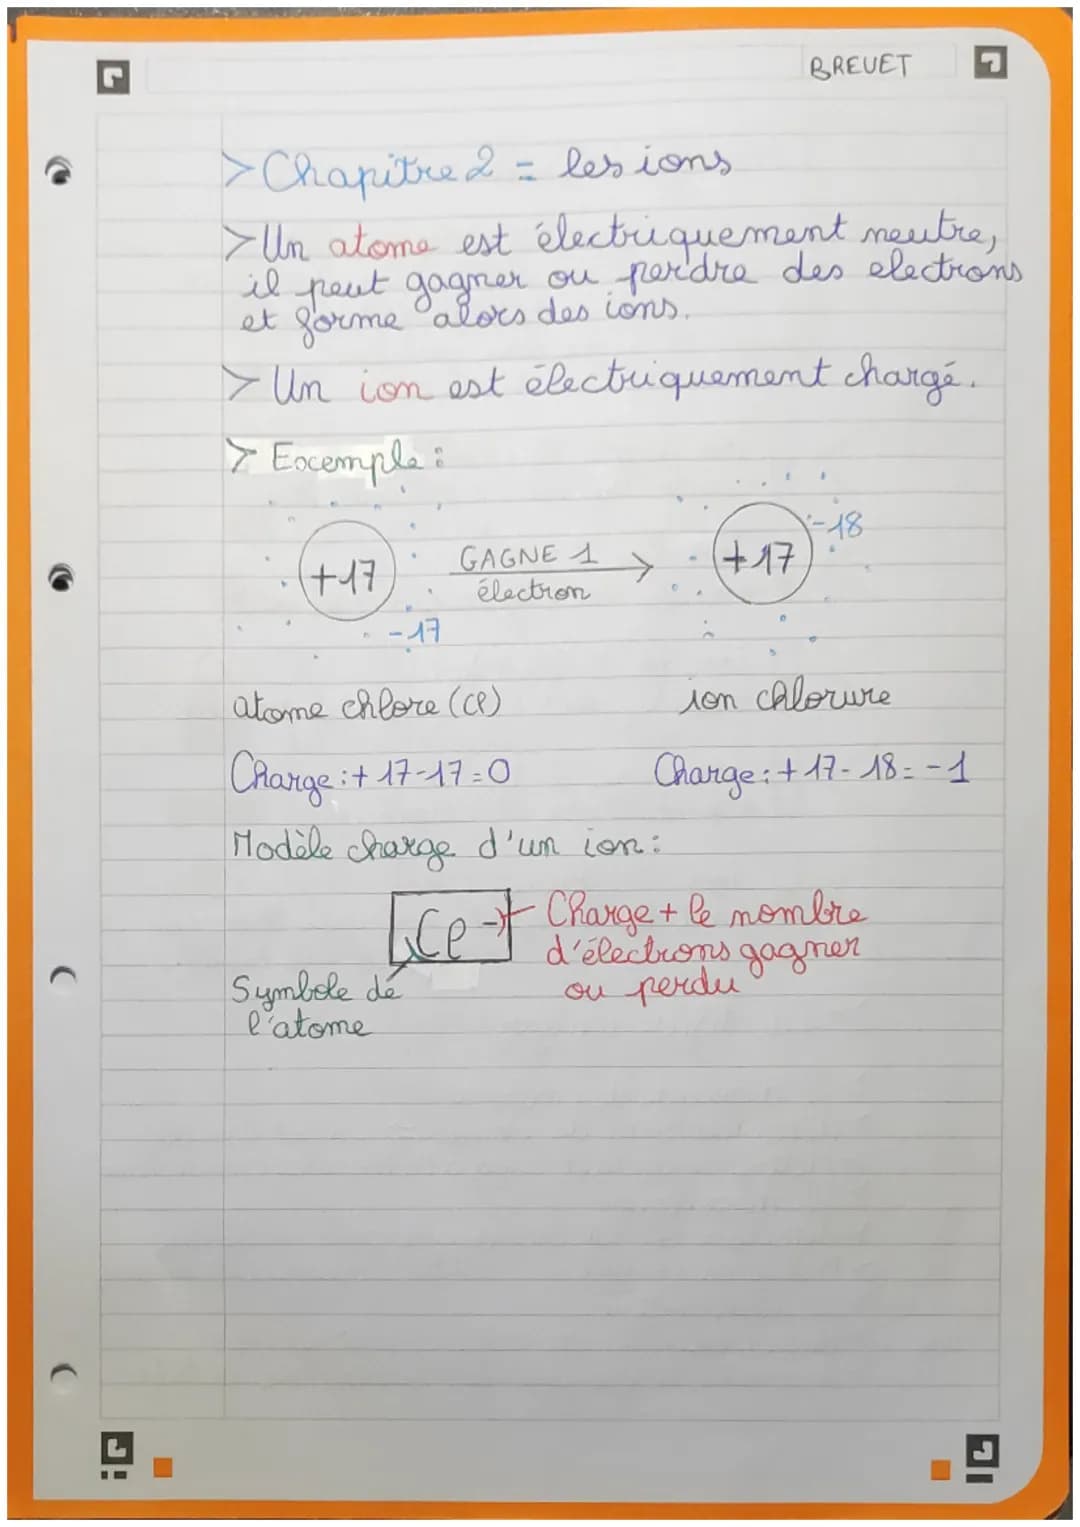 BREVET
> Chapitre 2 = les ions
> Un atome est électriquement neutre,
il peut gagner ou perdre des electrons
et forme alors des ions.
> Un ion est électriquement chargé.
> Exemple :
+17
-17
GAGNE 1
électron
+17
-18
atome chlore (Cl)
ion chlorure
Charge : + 17-17 = 0
Charge : + 17 - 18 = -1
Modèle charge d'un ion :
Cl -
Charge + le nombre
d'électrons gagner
ou perdu
Symbole de
l'atome